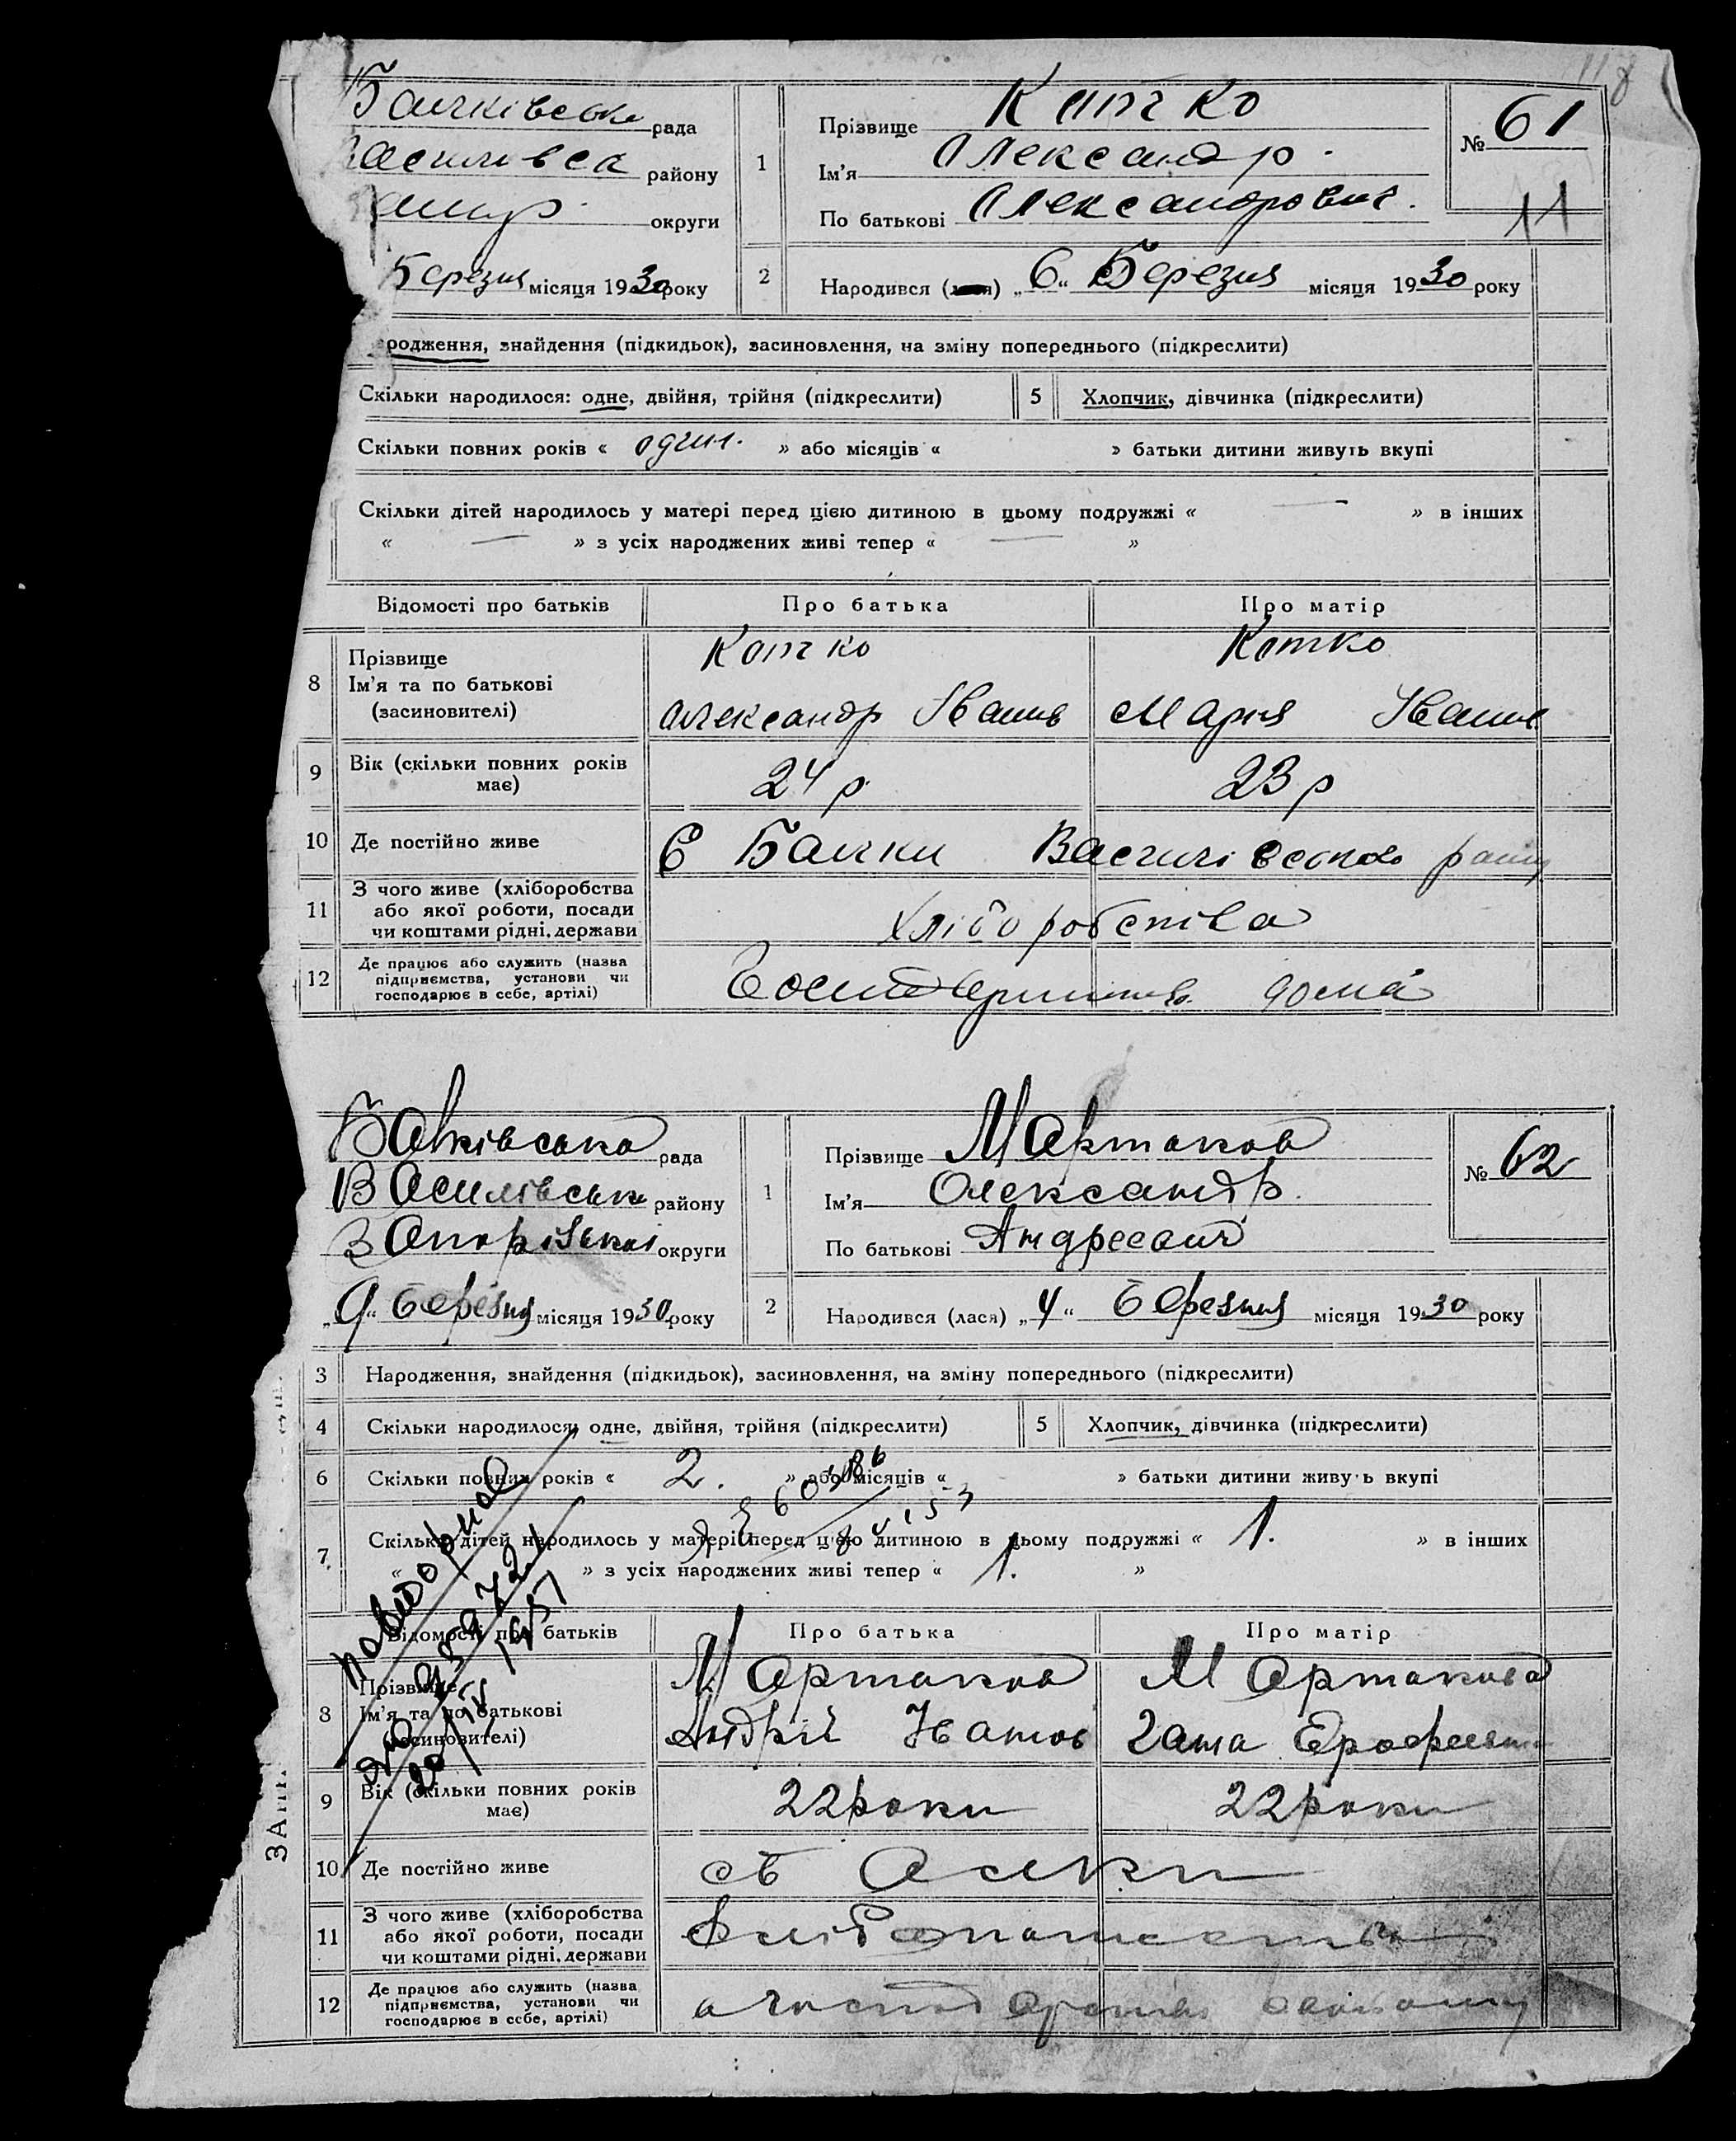 Балківська рада
район
округи
Березня місяця 1930 року
1
Прізвище Котко
Ім'я Олександр
По батькові Олександрович
№ 61
11
2
Народився ( ) „6“ Березня місяця 1930 року
родження, знайдення (підкидьок), засиновлення, на зміну попереднього (підкреслити)
Скільки народилося: одне, двійня, трійня (підкреслити)
5 Хлопчик, дівчинка (підкреслити)
Скільки повних років « один. » або місяців « » батьки дитини живуть вкупі
Скільки дітей народилось у матері перед цією дитиною в цьому подружжі « — » в інших
« — » з усіх народжених живі тепер « — »
Відомості про батьків Про батька Про матір
8 Прізвище
Ім'я та по батькові
(засиновителі)
Котко Котко
Александр Іванів Мария Іванів
9 Вік (скільки повних років
має)
24 р. 23 р
10 Де постійно живе
С Балки Василівського
11 З чого живе (хліборобства
або якої роботи, посади
чи коштами рідні, держави
Хліборобства
12 Де працює або служить (назва
підприємства, установи чи
господарює в себе, артілі)
дома
Балківська рада
Василівська району
Запоріської округи
„9“ березня місяця 1930 року
1
Прізвище Мартаков
Ім'я Олександр
По батькові Андреевич
№ 62
2
Народився (лася) „4“ березня місяця 1930 року
3 Народження, знайдення (підкидьок), засиновлення, на зміну попереднього (підкреслити)
4 Скільки народилося: одне, двійня, трійня (підкреслити)
5 Хлопчик, дівчинка (підкреслити)
6 Скільки повних років « 2. » або місяців « » батьки дитини живуть вкупі
7 Скільки дітей народилось у матері перед цією дитиною в цьому подружжі « 1. » в інших
« » з усіх народжених живі тепер « 1. »
Відомості про батьків Про батька Про матір
8 Прізвище
Ім'я та по батькові
(засиновителі)
Мартаков Мартакова
Андрій Іванов Ерофеевна
9 Вік (скільки повних років
має)
22 роки 22 роки
10 Де постійно живе
с Балки
11 З чого живе (хліборобства
або якої роботи, посади
чи коштами рідні, держави
12 Де працює або служить (назва
підприємства, установи чи
господарює в себе, артілі)